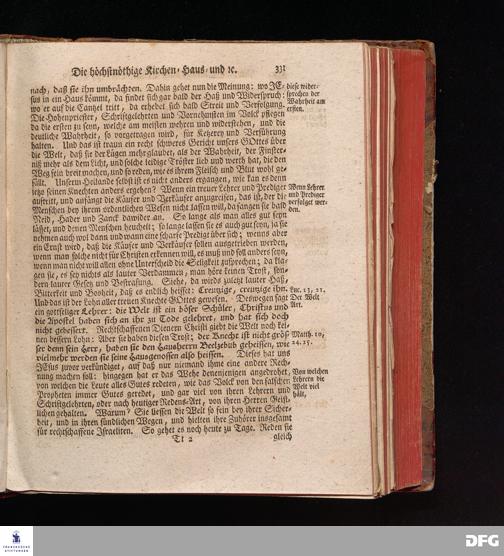 Die höchstnöthige Kirchen- Haus- und ꝛc. 331
nach, daß sie ihn umbrächten. Dahin gehet nun die Meinung: wo JE-
sus in ein Haus kömmt, da findet sich gar bald der Haß und Widerspruch:
wo er auf die Cantzel tritt, da erhebet sich bald Streit und Verfolgung.
Die Hohenpriester, Schriftgelehrten und Vornehmsten im Volck pflegen
da die ersten zu seyn, welche am meisten wehren und widerstehen, und die
deutliche Wahrheit, so vorgetragen wird, für Ketzerey und Verführung
halten. Und das ist traun ein recht schweres Gericht unsers GOttes über
die Welt, daß sie der Lügen mehr glaubet, als der Wahrheit, der Finster-
niß mehr als dem Licht, und solche leidige Tröster lieb und werth hat, die den
Weg sein breit machen, und so reden, wie es ihrem Fleisch und Blut wohl ge-
fällt. Unserm Heilande selbst ist es nicht anders ergangen, wie kan es denn
ietzo seinen Knechten anders ergehen? Wenn ein treuer Lehrer und Prediger
auftritt, und anfängt die Käufer und Verkäufer anzugreifen, das ist, der die
Menschen bey ihrem ordentlichen Wesen nicht lassen will, da fangen sie bald
Neid, Hader und Zanck dawider an. So lange als man alles gut seyn
lässet, und denen Menschen heuchelt; so lange lassen sie es auch gut seyn, ja sie
nehmen auch wol dann und wann eine scharfe Predigt über sich; wenns aber
ein Ernst wird, daß die Käufer und Verkäufer sollen ausgetrieben werden,
wenn man solche nicht für Christen erkennen will, es muß und soll anders seyn,
wenn man nicht will allen ohne Unterscheid die Seligkeit zusprechen; da kla-
gen sie, es sey nichts als lauter Verdammen, man höre keinen Trost, son-
dern lauter Gesetz und Bestrafung. Siehe, da wirds zuletzt lauter Haß,
Bitterkeit und Bosheit, daß es endlich heisset: Creutzige, creutzige ihn.
Und das ist der Lohn aller treuen Knechte GOttes gewesen. Deswegen sagt
ein gottseliger Lehrer: die Welt ist ein böser Schüler, Christus und
die Apostel haben sich an ihr zu Tode gelehret, und hat sich doch
nicht gebessert. Rechtschaffenen Dienern Christi giebt die Welt noch kei-
nen bessern Lohn: Aber sie haben diesen Trost; der Knecht ist nicht größ-
ser denn sein Herr, haben sie den Hausherrn Beelzebub geheissen, wie
vielmehr werden sie seine Hausgenossen also heissen. Dieses hat uns
JEsus zuvor verkündiget, auf daß wir niemand ihme eine andere Rech-
nung machen soll: hingegen hat er das Wehe denenjenigen angedrohet,
von welchen die Leute alles Gutes redeten, wie das Volck von den falschen
Propheten immer Gutes geredet, und gar viel von ihren Lehrern und
Schriftgelehrten, oder nach heutiger Redens-Art, von ihren Herren Geist-
lichen gehalten. Warum? Sie liessen die Welt so fein bey ihrer Sicher-
heit, und in ihren sündlichen Wegen, und hielten ihre Zuhörer insgesamt
für rechtschaffene Israeliten. So gehet es noch heute zu Tage. Reden sie
Tt 2 gleich
diese wider-
sprechen der
Wahrheit am
ersten.
Wenn Lehrer
und Prediger
verfolget wer-
den.
Luc. 23, 21.
Der Welt
Art.
Matth. 10,
24. 25.
Von welchen
Lehrern die
Welt viel
hält,
FRANCKESCHE
STIFTUNGEN
DFG